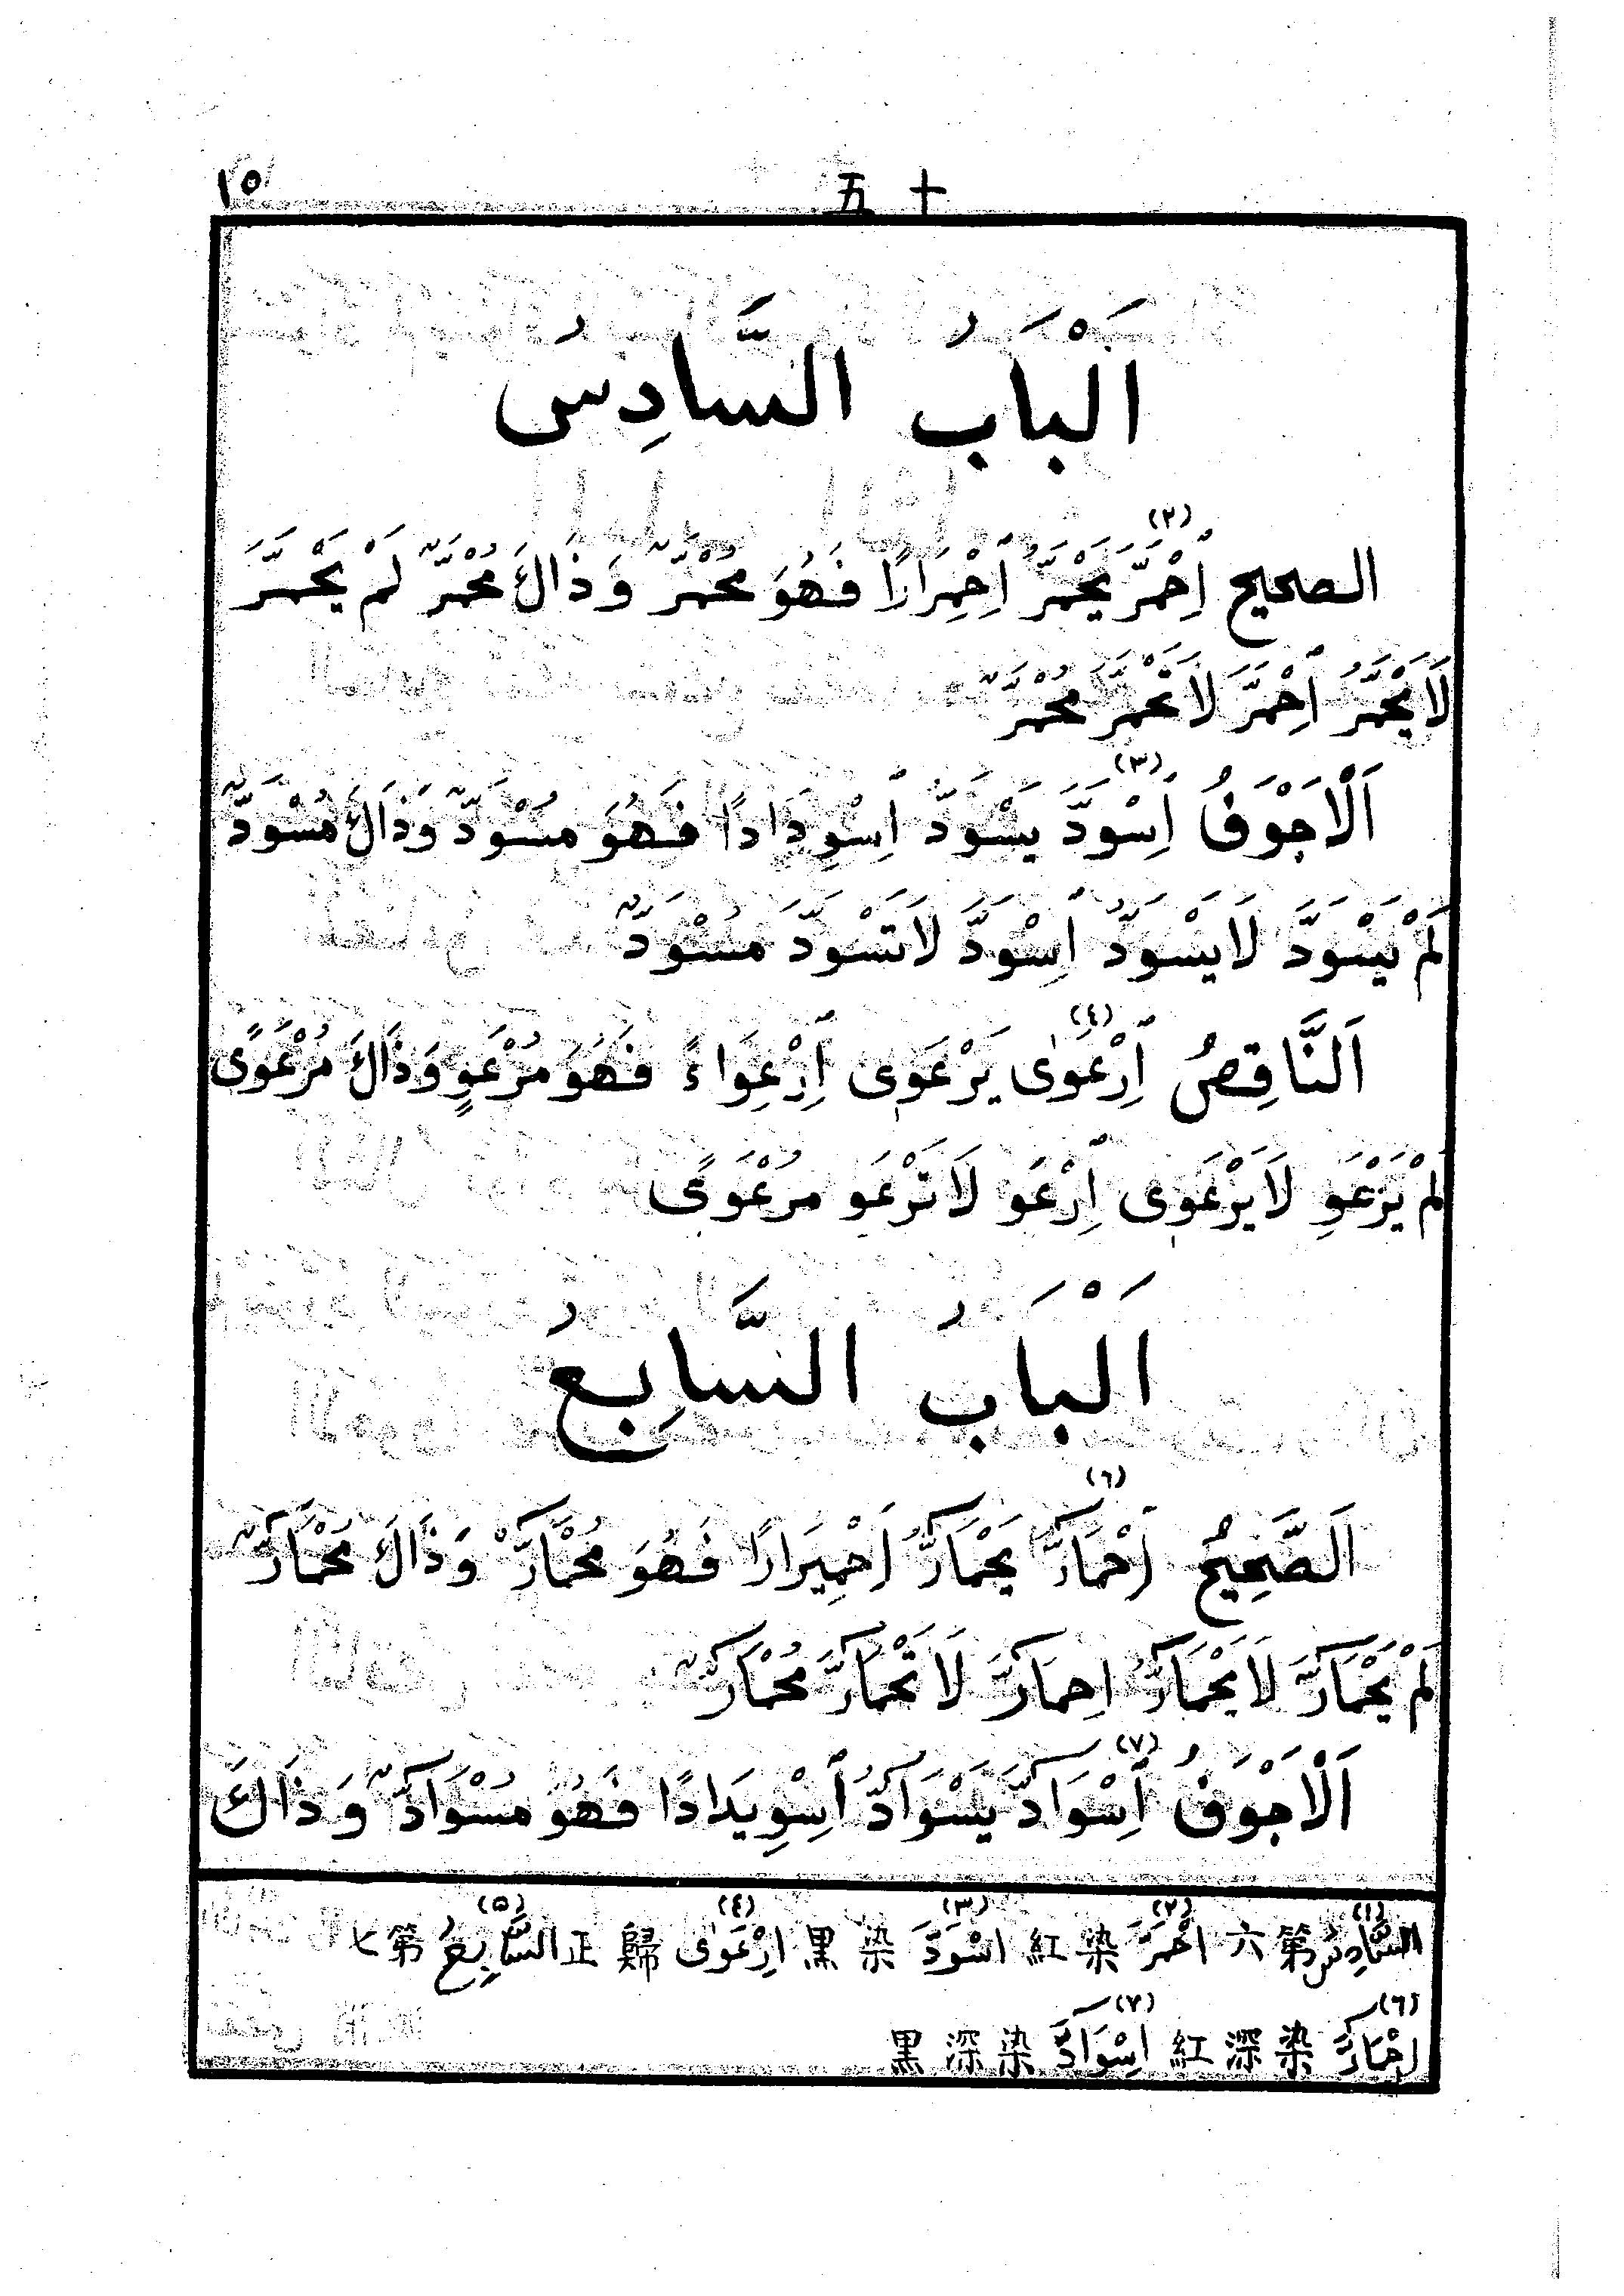 ١٥ 十五
اَلْبَابُ السَّادِسُ
الصحيح اِحْمَرَّ(٢) يَحْمَرُّ اِحْمِرَارًا فَهُوَ مُحْمَرٌّ وَذَاكَ مُحْمَرٌّ لَمْ يَحْمَرَّ
لَايَحْمَرُّ اِحْمَرَّ لَاتَحْمَرَّ مُحْمَرٌّ
اَلْاَجْوَفُ اِسْوَدَّ(٣) يَسْوَدُّ اِسْوِدَادًا فَهُوَ مُسْوَدٌّ وَذَاكَ مُسْوَدٌّ
لَمْ يَسْوَدَّ لَايَسْوَدُّ اِسْوَدَّ لَاتَسْوَدَّ مُسْوَدٌّ
اَلنَّاقِصُ اِرْعَوٰى(٤) يَرْعَوِى اِرْعِوَاءً فَهُوَ مُرْعَوٍ وَذَاكَ مُرْعَوًى
لَمْ يَرْعَوِ لَايَرْعَوِى اِرْعَوِ لَاتَرْعَوِ مُرْعَوًى
اَلْبَابُ السَّابِعُ
اَلصَّحِيحُ اِحْمَارَّ(٦) يَحْمَارُّ اِحْمِيرَارًا فَهُوَ مُحْمَارٌّ وَذَاكَ مُحْمَارٌّ
لَمْ يَحْمَارَّ لَايَحْمَارُّ اِحمَارَّ لَاتَحْمَارَّ مُحْمَارٌّ
اَلْاَجْوَفُ اِسْوَادَّ(٧) يَسْوَادُّ اِسْوِيدَادًا فَهُوَ مُسْوَادٌّ وَذَاكَ
(١) السَّادِسُ 第六 (٢) احْمَرَّ 染紅 (٣) اسْوَدَّ 染黑 (٤) اِرْعَوٰى 歸正 (٥) السَّابِعُ 第七
(٦) اِحْمَارَّ 染深紅 (٧) اِسْوَادَّ 染深黑